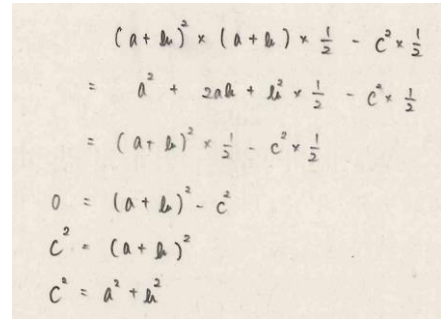 (a+b)² × (a+b) × 1/2 - c² × 1/2
= a² + 2ab + b² × 1/2 - c² × 1/2
= (a+b)² × 1/2 - c² × 1/2
0 = (a+b)² - c²
c² = (a+b)²
c² = a² + b²